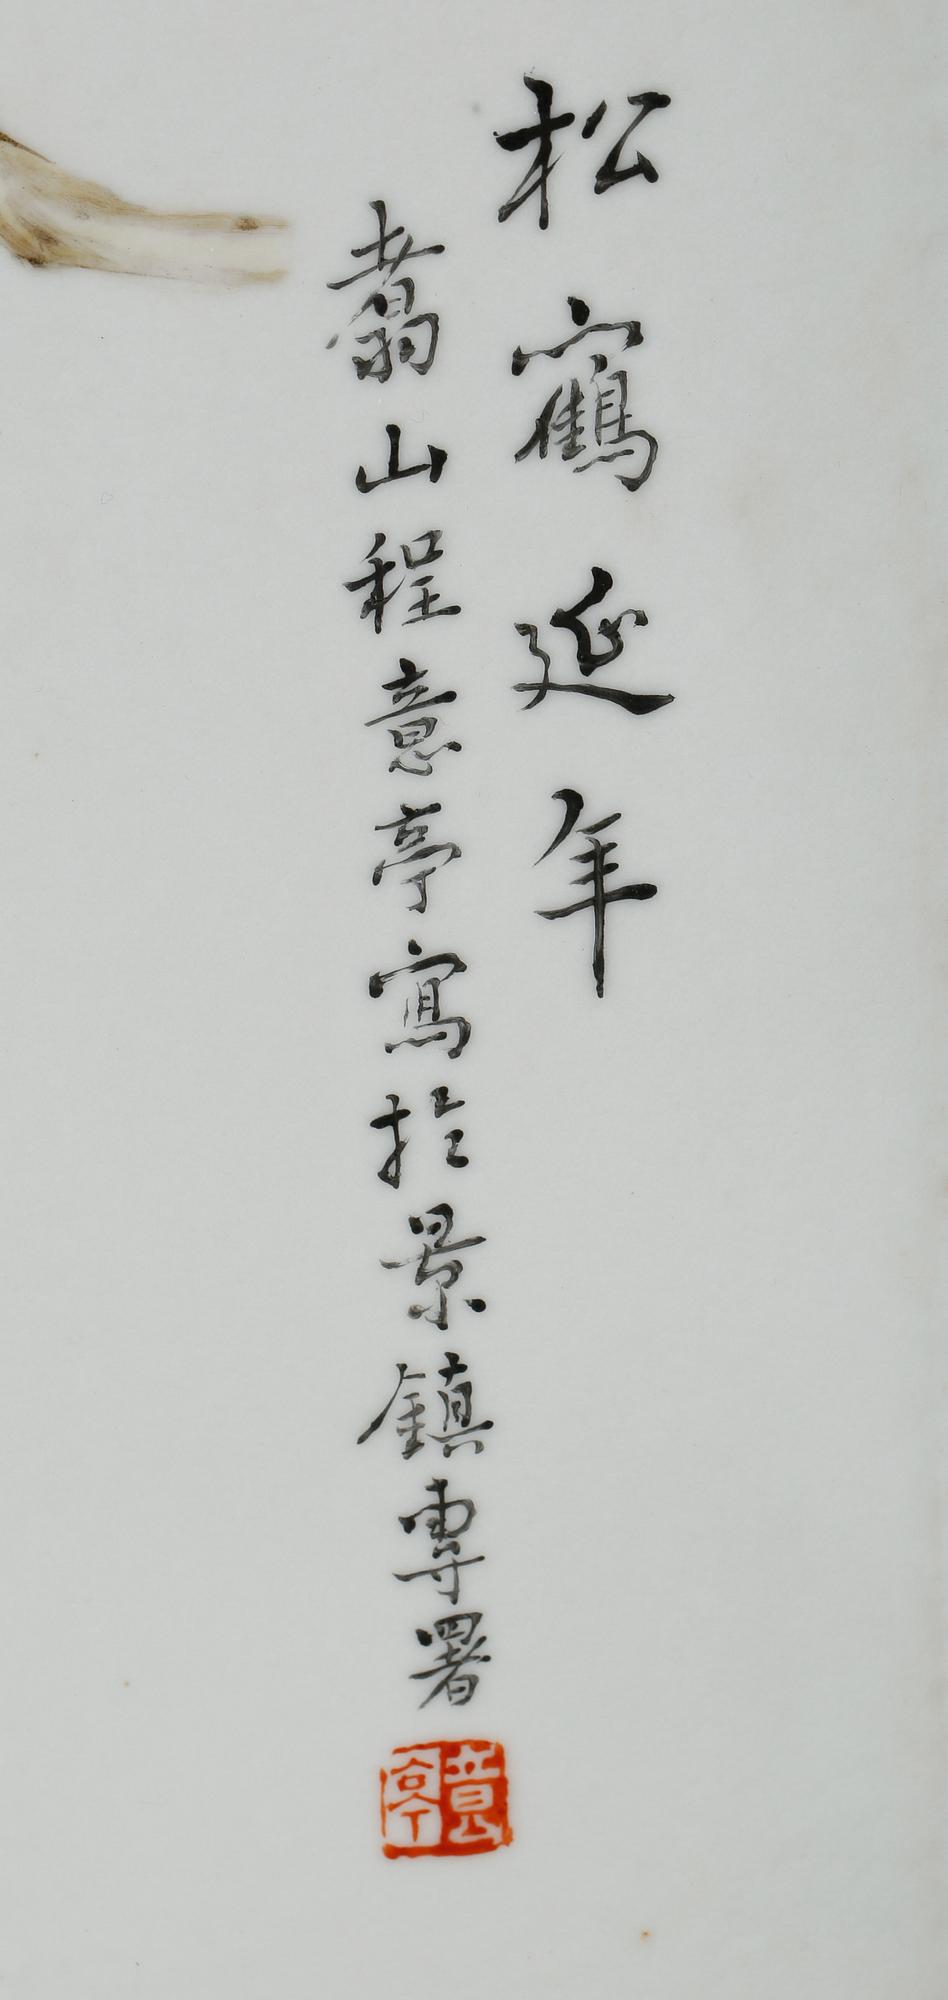 松鶴延年
翥山程意亭寫於景鎮專署
意亭